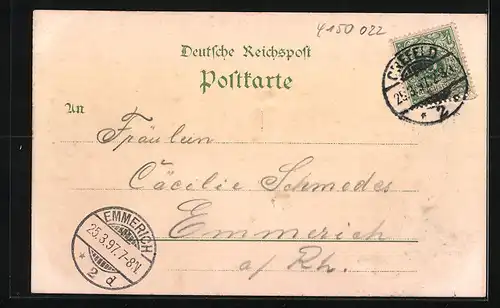 4150022
Deutsche Reichspost
Postkarte
CREFELD
25.3.97.
* 2
An
Fräulein
Cäcilie Schmedes
Emmerich
a/Rh.
EMMERICH
25.3.97.7-8N.
* 2 d